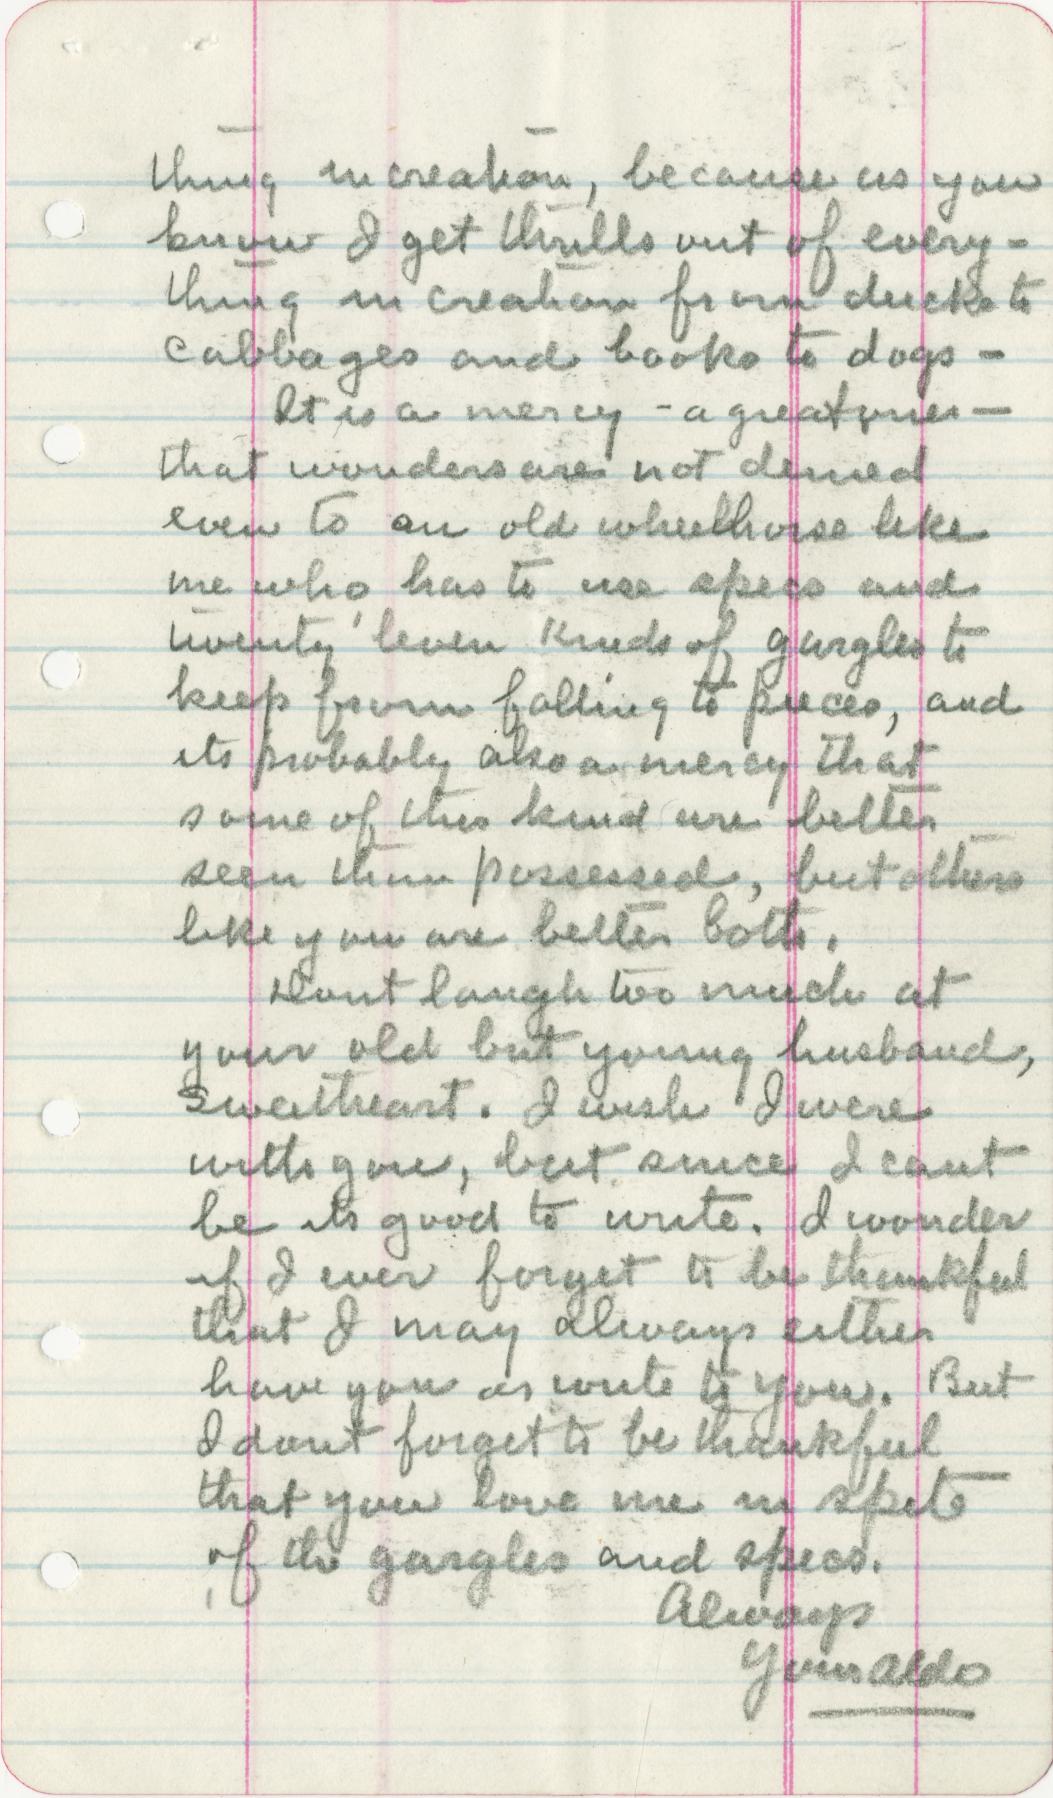 thing in creation, because as you
know I get thrills out of every-
thing in creation from ducks to
cabbages and books to dogs -
It is a mercy - a great one -
that wonders are not denied
even to an old wheelhorse like
me who has to use specs and
twenty 'leven kinds of gargles to
keep from falling to pieces, and
its probably also a mercy that
some of this kind are better
seen than possessed, but others
like you are better both.
Dont laugh too much at
your old but young husband,
sweetheart. I wish I were
with you, but since I cant
be its good to write. I wonder
if I ever forget to be thankful
that I may always either
have you or write to you. But
I dont forget to be thankful
that you love me in spite
of the gargles and specs.
Always
Your Aldo